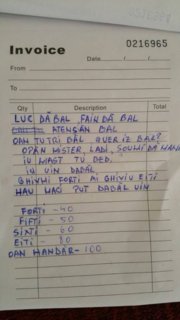 Invoice
0216965
Date / /
From
To
Qty Description Total
LUC DĂ BAL FAIN DĂ BAL
ATENȘĂN BAL
OAN TU TRI BAL AUER IZ BAL?
OPĂN MISTER LADI, ȘOUMI DĂ
IU LAST TU DED.
IU UIN DABĂL
GHIVMI FORTI AI GHIVIU EITI
HAU MACI PUT DABĂL UIN
FORTI - 40
FIFTI - 50
SIXTI - 60
EITI - 80
OAN HANDĂR - 100